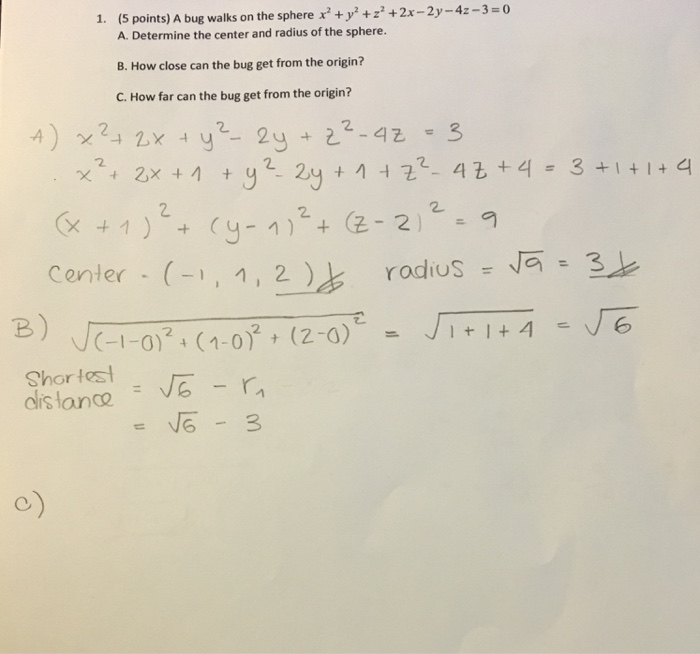 1. (5 points) A bug walks on the sphere x² + y² + z² + 2x – 2y – 4z – 3 = 0
A. Determine the center and radius of the sphere.
B. How close can the bug get from the origin?
C. How far can the bug get from the origin?
A) x² + 2x + y² - 2y + z² - 4z = 3
x² + 2x + 1 + y² - 2y + 1 + z² - 4z + 4 = 3 + 1 + 1 + 4
(x + 1)² + (y - 1)² + (z - 2)² = 9
center - (-1, 1, 2) radius = √9 = 3
B) √(-1-0)² + (1-0)² + (2-0)² = √1 + 1 + 4 = √6
Shortest distance = √6 - r₁
= √6 - 3
C)